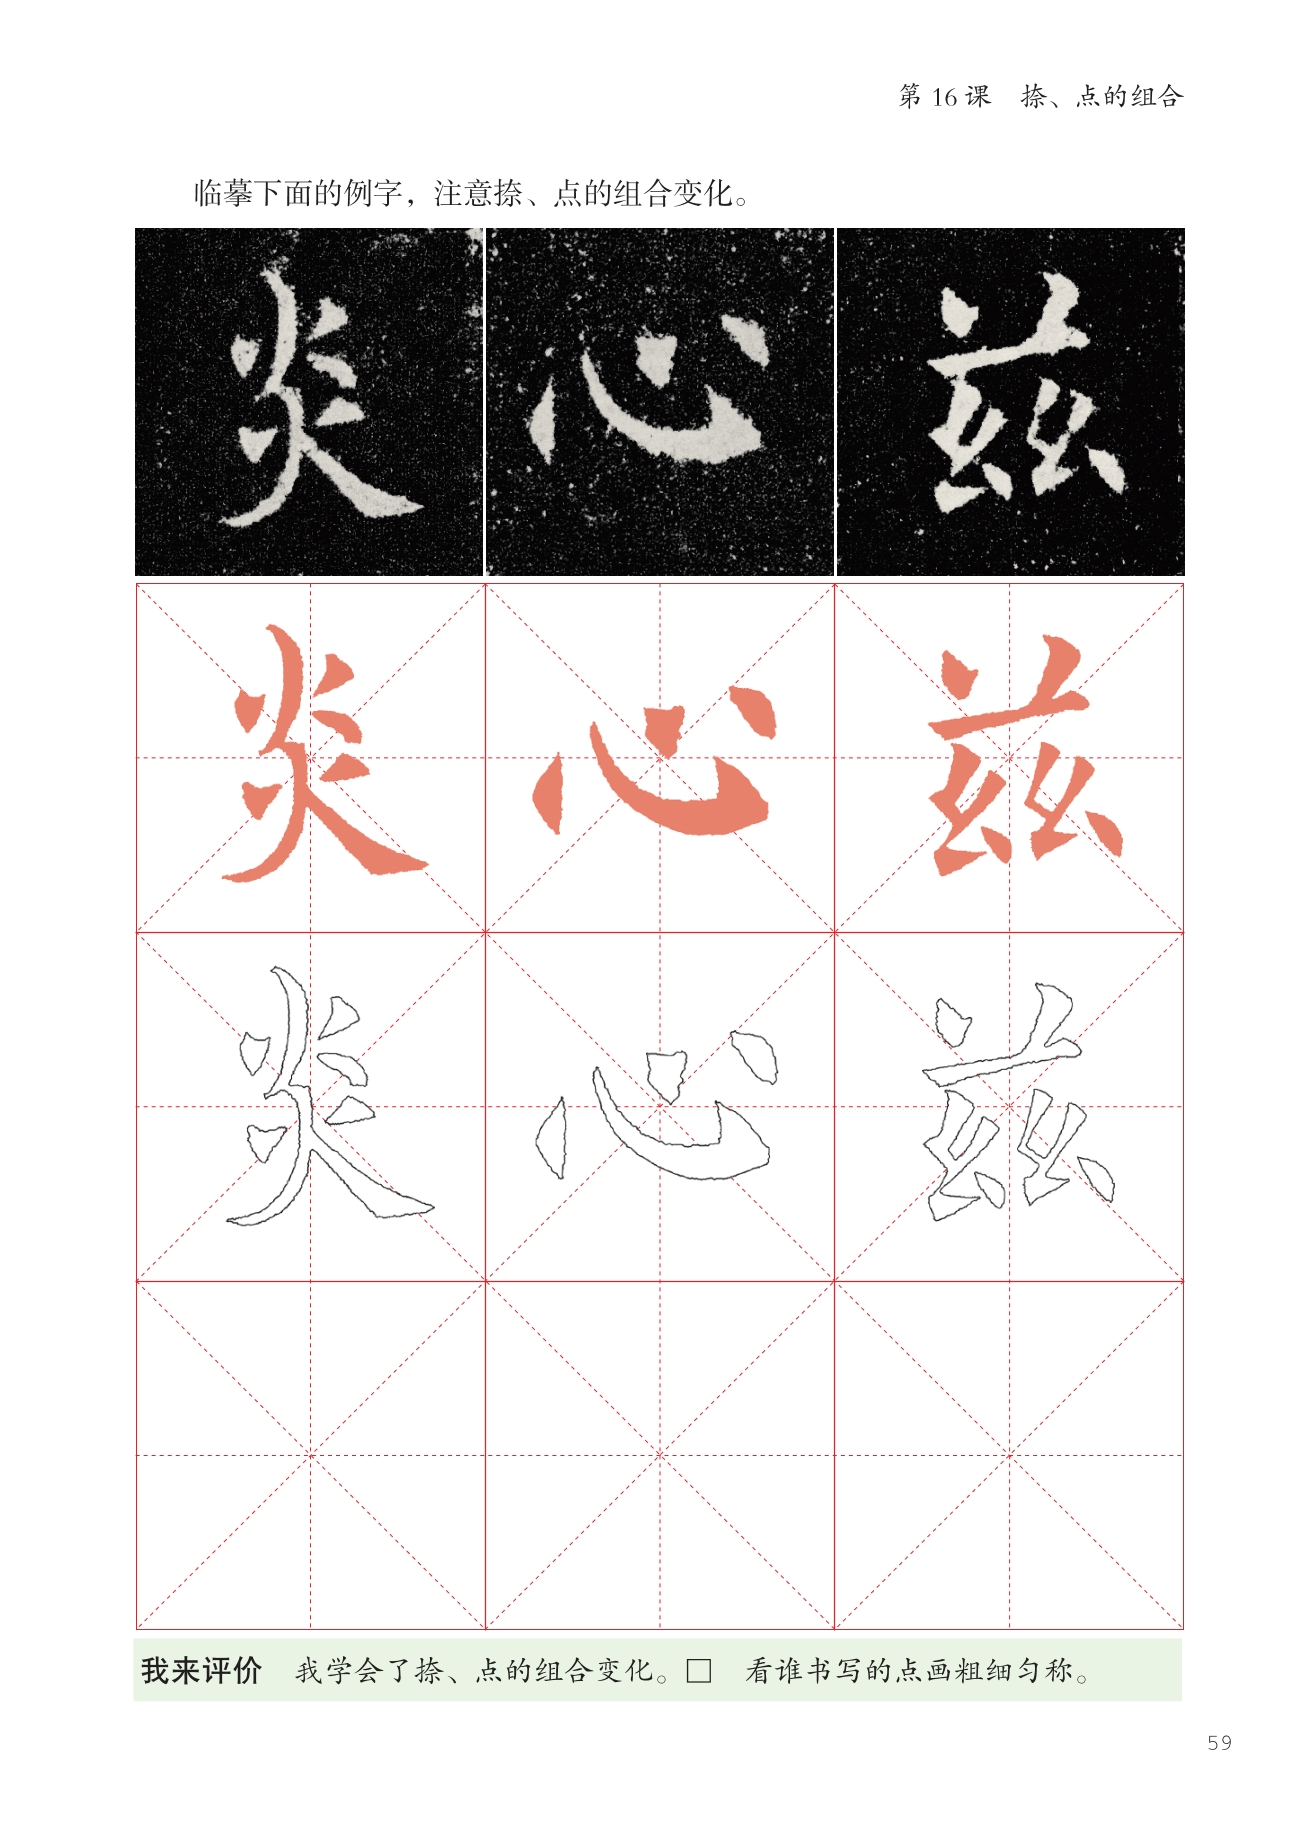 第 16 课　捺、点的组合
临摹下面的例字，注意捺、点的组合变化。
炎 心 兹
炎 心 兹
炎 心 兹
我来评价　我学会了捺、点的组合变化。□　看谁书写的点画粗细匀称。
59